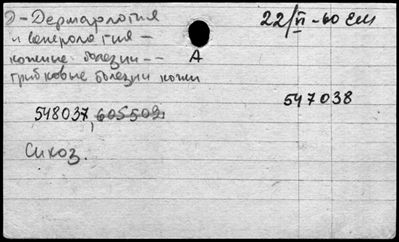 Э-Дерматология
и венерология -
кожные болезни --
грибковые болезни кожи
А
22/VI-60 ЕШ
547038
548037, 605509
Сикоз.